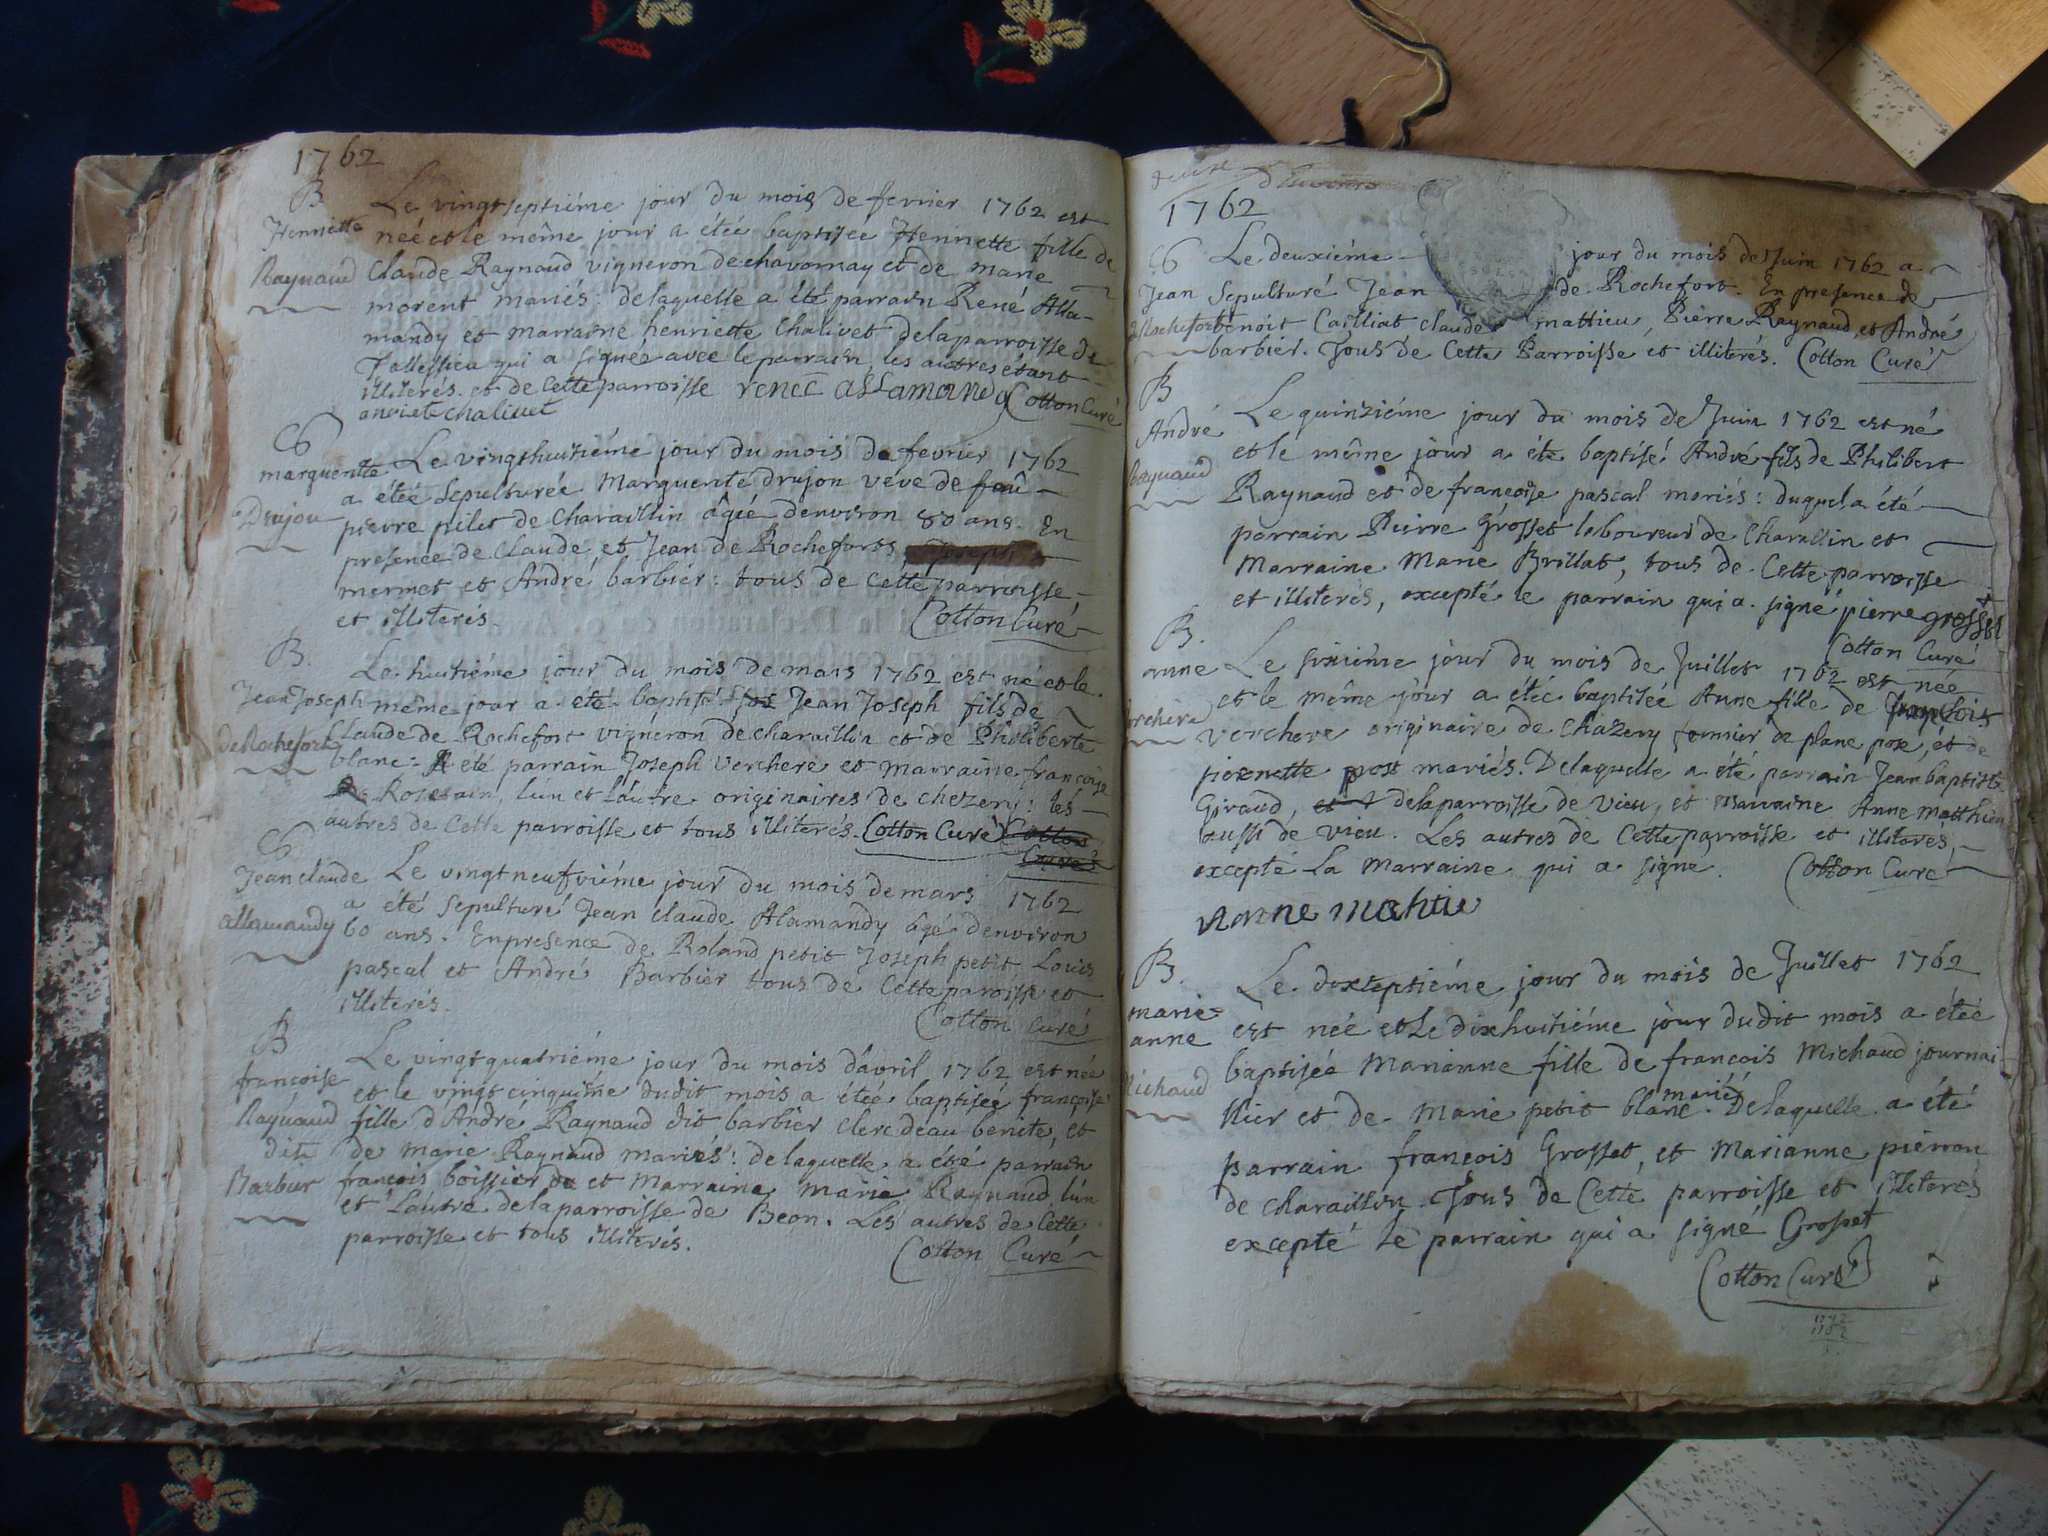 1762
B
Henriette
Raynaud
Le vingtseptiéme jour du mois de fevrier 1762 est
née et le même jour a étée baptisee Henriette fille de
Claude Raynaud vigneron de chavornay et de marie
morent mariés: delaquelle a été parrain René Alla-
mandy et marraine henriette Chalivet delaparroisse de
qui a signée avec le parrain, les autres étant
illiterés. et de Cette parroisse renee allamand Cotton Curé
chalivet
S
marguerite
Drujon
Le vingthuitiéme jour du mois de fevrier 1762
a étée Sepulturée Marguerite drujon veve de feû
pierre pilet de Charaillin âgée denviron 80 ans. En
presence de Claude et Jean de Rocheforts, Joseph
mermet et André barbier: tous de Cette parroisse
et illiterés. Cotton Curé
B.
Jean Joseph
De Rochefort
Le huitiéme jour du mois de mars 1762 est né et le
même jour a été baptisé Jean Joseph fils de
Claude de Rochefort vigneron de charaillin et de Philiberte
blanc: A eté parrain Joseph Verchere et marraine françoise
Rosetain, lun et lautre originaires de chezery: les
autres de Cette parroisse et tous illiterés. Cotton Curé Cotton
Curé
S
Jean claude
allamandy
Le vingtneufviéme jour du mois de mars 1762
a été Sepulturé Jean Claude Alamandy âgé denviron
60 ans. En presence de Roland petit Joseph petit Louis
pascal et André Barbier tous de Cette paroisse et
illiterés. Cotton Curé
B
françoise
Raynaud
dite
Barbier
Le vingtquatriéme jour du mois davril 1762 est née
et le vingt cinquiéme dudit mois a étée baptisée françoise
fille d'André Raynaud dit barbier clerc deau benite, et
de Marie Raynaud mariés: delaquelle a été parrain
francois boissier et Marraine Marie Raynaud lun
et Lautre delaparroisse de Beon. Les autres de Cette
parroisse et tous illiterés. Cotton Curé
1762
S
Jean
de Rochefort
Le deuxiéme jour du mois de Juin 1762 a
Sepulturé Jean de Rochefort. En presence de
benoit Cailliat claude mattieu, Pierre Raynaud, et André
barbier. Tous de Cette Parroisse et illiterés. Cotton Curé
B
André
Raynaud
Le quinziéme jour du mois de Juin 1762 est né
et le même jour a été baptisé André fils de Philibert
Raynaud et de françoise pascal mariés: duquel a été
parrain Pierre Grosset laboureur de Charallin et
Marraine Marie Brillat, tous de Cette parroisse
et illiterés, excepté le parrain qui a signé pierre grosset
Cotton Curé
B.
anne
verchere
Le sixiéme jour du mois de Juillet 1762 est née
et le même jour a étée baptisée Anne fille de francois
verchere originaire de Chazery fermier de plane pose, et de
pernette post mariés. Delaquelle a été parrain Jean baptiste
Giraud, delaparroisse de Vieu, et Marraine Anne Matthieu
aussi de Vieu. Les autres de Cette parroisse et illiterés,
excepté La Marraine qui a signé. Cotton Curé
B.
marie
anne
Michaud
Le dixseptiéme jour du mois de Juillet 1762
est née et Le dixhuitiéme jour dudit mois a étée
baptisée Marianne fille de francois Michaud journai-
llier et de Marie petit blanc mariés. Delaquelle a été
parrain francois Grosset, et Marianne pierron
de Charaillin. Tous de Cette parroisse et illiterés
excepté Le parrain qui a signé Grosset
Cotton Curé